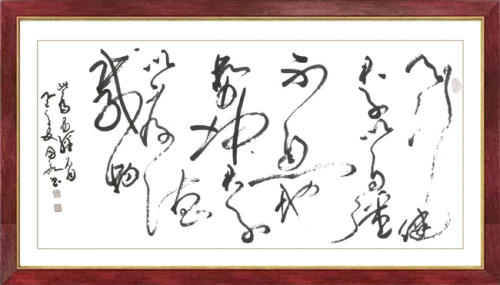 天行健
君子以自强
不息地
势坤君子
以厚德
载物